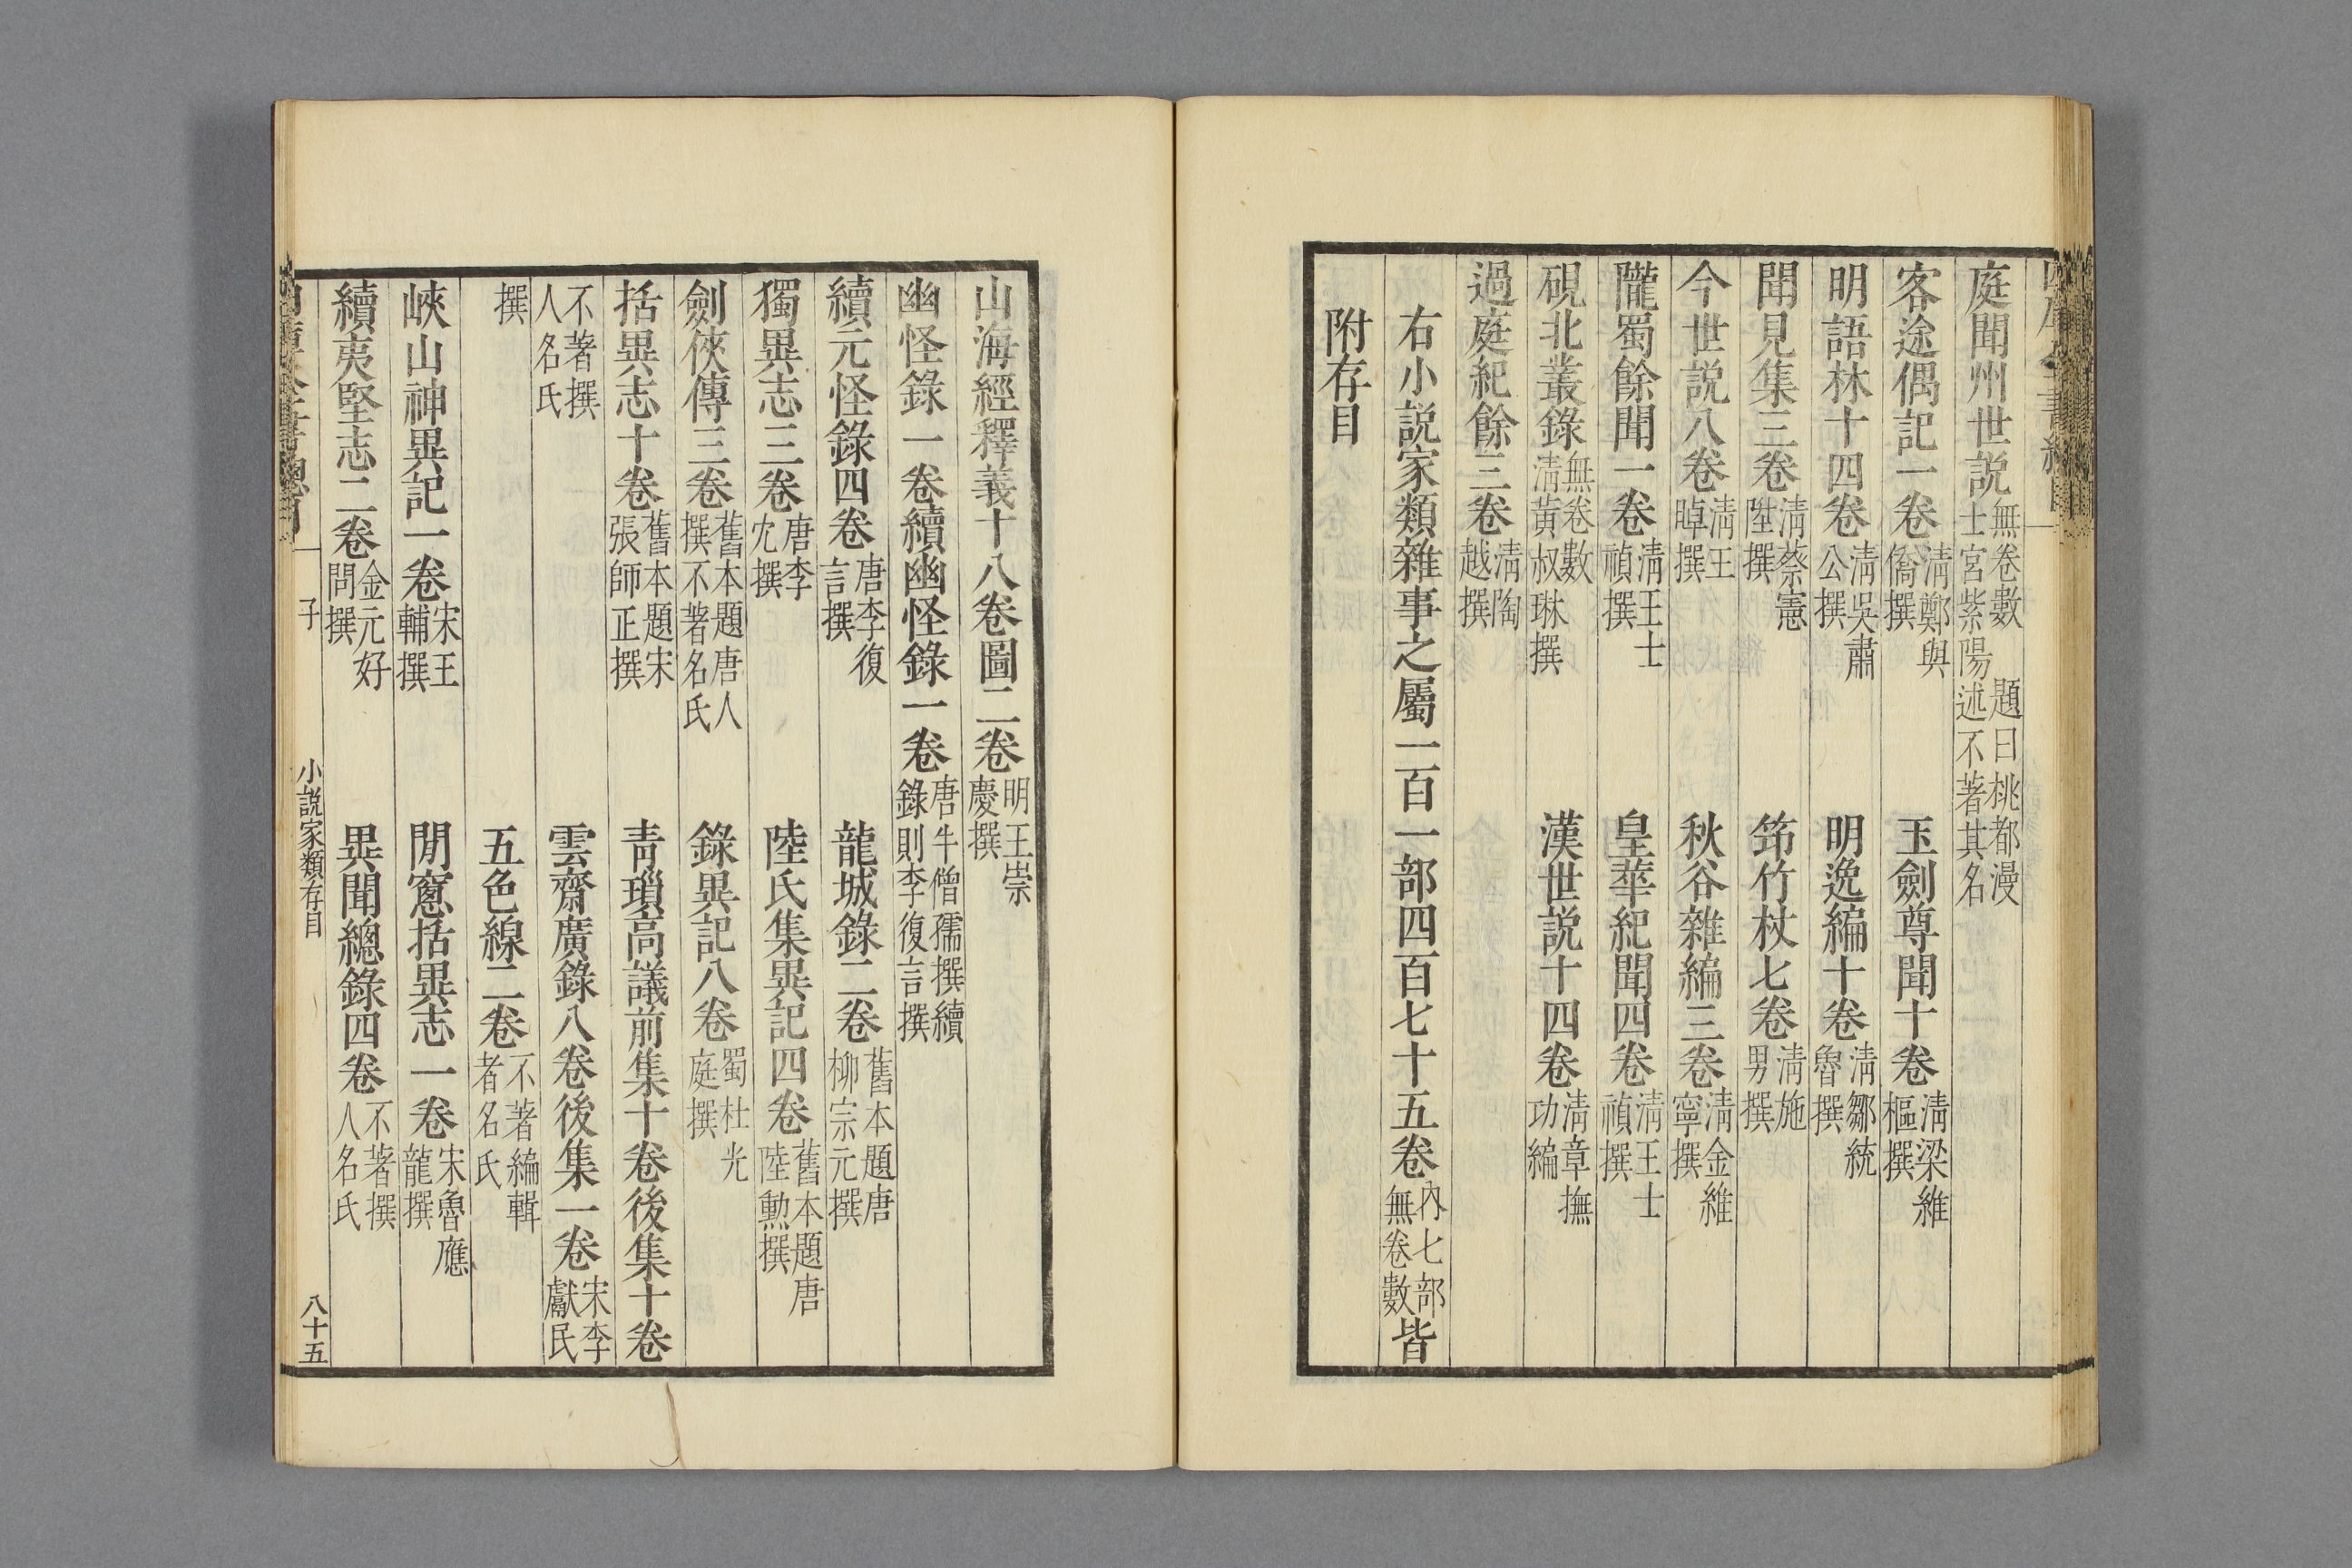 庭聞州世説無卷數題曰桃都漫士宮紫陽述不著其名
客途偶記一卷清鄭與僑撰　玉劍尊聞十卷清梁維樞撰
明語林十四卷清吳肅公撰　明逸編十卷清鄒統魯撰
聞見集三卷清蔡憲陞撰　筇竹杖七卷清施男撰
今世説八卷清王晫撰　秋谷雜編三卷清金維寧撰
隴蜀餘聞一卷清王士禎撰　皇華紀聞四卷清王士禎撰
硯北叢錄無卷數清黃叔琳撰　漢世説十四卷清章撫功編
過庭紀餘三卷清陶越撰
右小説家類雜事之屬一百一部四百七十五卷內七部無卷數皆
附存目
山海經釋義十八卷圖二卷明王崇慶撰
幽怪錄一卷續幽怪錄一卷唐牛僧孺撰續錄則李復言撰
續元怪錄四卷唐李復言撰　龍城錄二卷舊本題唐柳宗元撰
獨異志三卷唐李冗撰　陸氏集異記四卷舊本題唐陸勳撰
劍俠傳二卷舊本題唐人撰不著名氏　錄異記八卷蜀杜光庭撰
括異志十卷舊本題宋張師正撰　靑瑣高議前集十卷後集十卷
不著撰人名氏　雲齋廣錄八卷後集一卷宋李獻民
撰　五色線二卷不著編輯者名氏
峽山神異記一卷宋王輔撰　閒窻括異志一卷宋魯應龍撰
續夷堅志二卷金元好問撰　異聞總錄四卷不著撰人名氏
子　小説家類存目　八十五